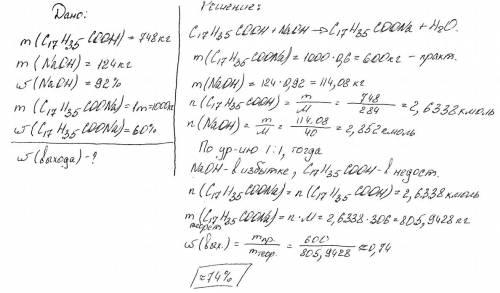 Дано:
m(C₁₇H₃₅COOH) = 748 кг
m(NaOH) = 124 кг
ω(NaOH) = 92%
m(C₁₇H₃₅COONa) = 1т = 1000кг
ω(C₁₇H₃₅COONa) = 60%
ω(выхода) - ?
Решение:
C₁₇H₃₅COOH + NaOH → C₁₇H₃₅COONa + H₂O.
m(C₁₇H₃₅COONa) = 1000·0,6 = 600кг - практ.
m(NaOH) = 124·0,92 = 114,08 кг
n(C₁₇H₃₅COOH) = m/M = 748/284 = 2,6338 кмоль
n(NaOH) = m/M = 114,08/40 = 2,852 кмоль
По ур-ию 1:1, тогда
NaOH - в избытке, C₁₇H₃₅COOH - в недост.
n(C₁₇H₃₅COONa) = n(C₁₇H₃₅COOH) = 2,6338 кмоль
m теорет (C₁₇H₃₅COONa) = n·M = 2,6338·306 = 805,9428 кг
ω(вых.) = mпр./mтеор. = 600/805,9428 ≈ 0,74
≈ 74%